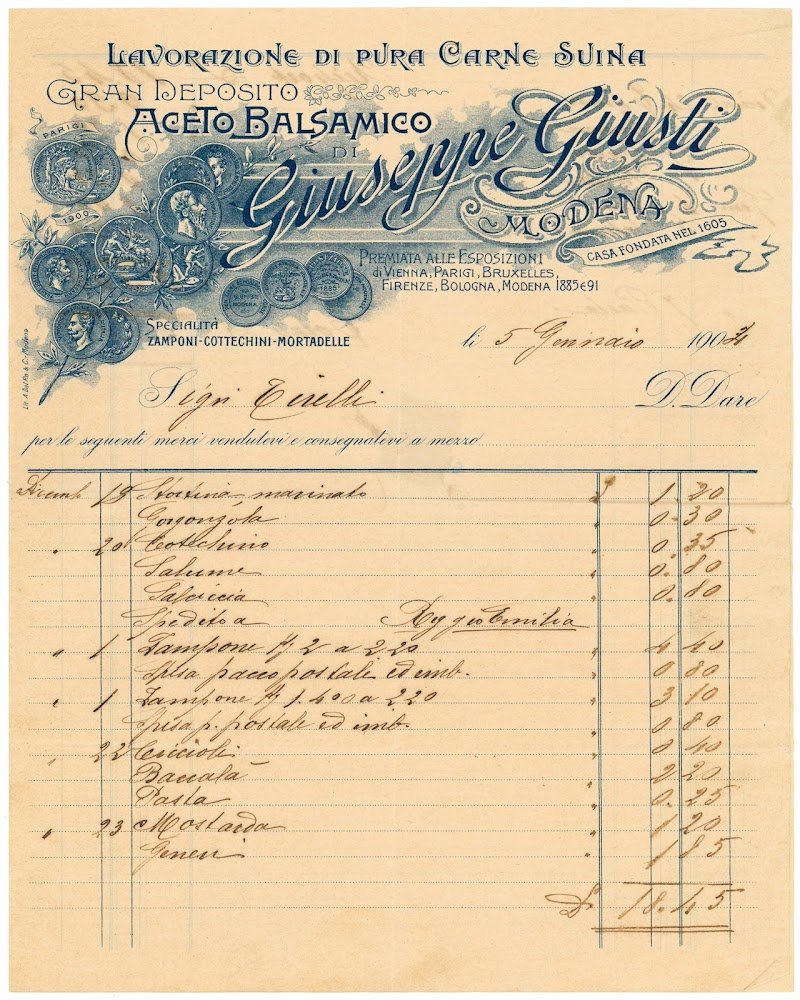 LAVORAZIONE DI PURA CARNE SUINA
GRAN DEPOSITO
ACETO BALSAMICO
DI
Giuseppe Giusti
MODENA
CASA FONDATA NEL 1605
PARIGI
1900
PREMIATA ALLE ESPOSIZIONI
di VIENNA, PARIGI, BRUXELLES,
FIRENZE, BOLOGNA, MODENA 1885 E 91
SPECIALITÀ
ZAMPONI-COTTECHINI-MORTADELLE
li 5 Gennaio 1904
Sigri Tirelli D. Dare
per le seguenti merci vendutevi e consegnatevi a mezzo
Dicemb 19 marinato £ 1.20
Gorgonzola " 0.30
" 20 Cotechino " 0.35
Salume " 0.80
Salsiccia " 0.80
Spedito a Reggio Emilia
" 1 Zampone Kg 2 a 2.20 " 4 40
Spesa pacco postale ed imb. " 0 80
" 1 Zampone Kg 1.400 a 2.20 " 3 10
Spesa p. postale ed imb. " 0 80
" 22 Ciccioli " 0 40
Baccalà " 2 20
Pasta " 0.25
" 23 Mostarda " 1 20
Generi " 1 85
£ 18.45